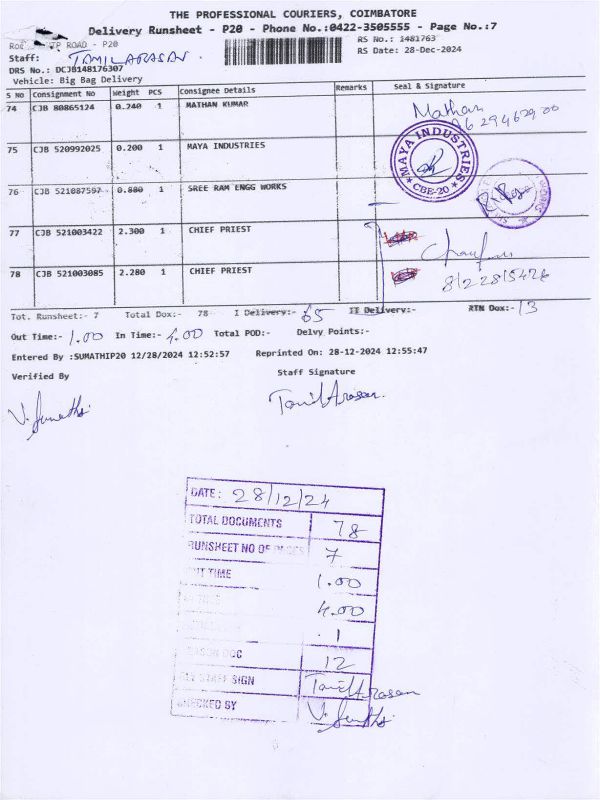 THE PROFESSIONAL COURIERS, COIMBATORE
Delivery Runsheet - P20 - Phone No.:0422-3505555 - Page No.:7
TP ROAD - P20
RS No.: 1481763
Staff: TAMILARASAN
RS Date: 28-Dec-2024
DRS No.: DCJB148176307
Vehicle: Big Bag Delivery
S No Consignment No Weight PCS Consignee Details Remarks Seal & Signature
74 CJB 80865124 0.240 1 MATHAN KUMAR Mathan
75 CJB 520992025 0.200 1 MAYA INDUSTRIES
MAYA INDUSTRIES
CBE-20
76 CJB 521087597 0.880 1 SREE RAM ENGG WORKS
77 CJB 521003422 2.300 1 CHIEF PRIEST
78 CJB 521003085 2.280 1 CHIEF PRIEST 8122815426
Tot. Runsheet:- 7 Total Dox:- 78 I Delivery:- 65 II Delivery:- RTN Dox:- 13
Out Time:- 1.00 In Time:- 4.00 Total POD:- Delvy Points:-
Entered By :SUMATHIP20 12/28/2024 12:52:57 Reprinted On: 28-12-2024 12:55:47
Verified By Staff Signature
V. Sumathi TamilArasan.
DATE: 28/12/24
TOTAL DOCUMENTS 78
RUNSHEET NO OF 7
TIME 1.00
4.00
1
DOC 12
STAFF SIGN TamilArasan
CHECKED BY V. Sumathi